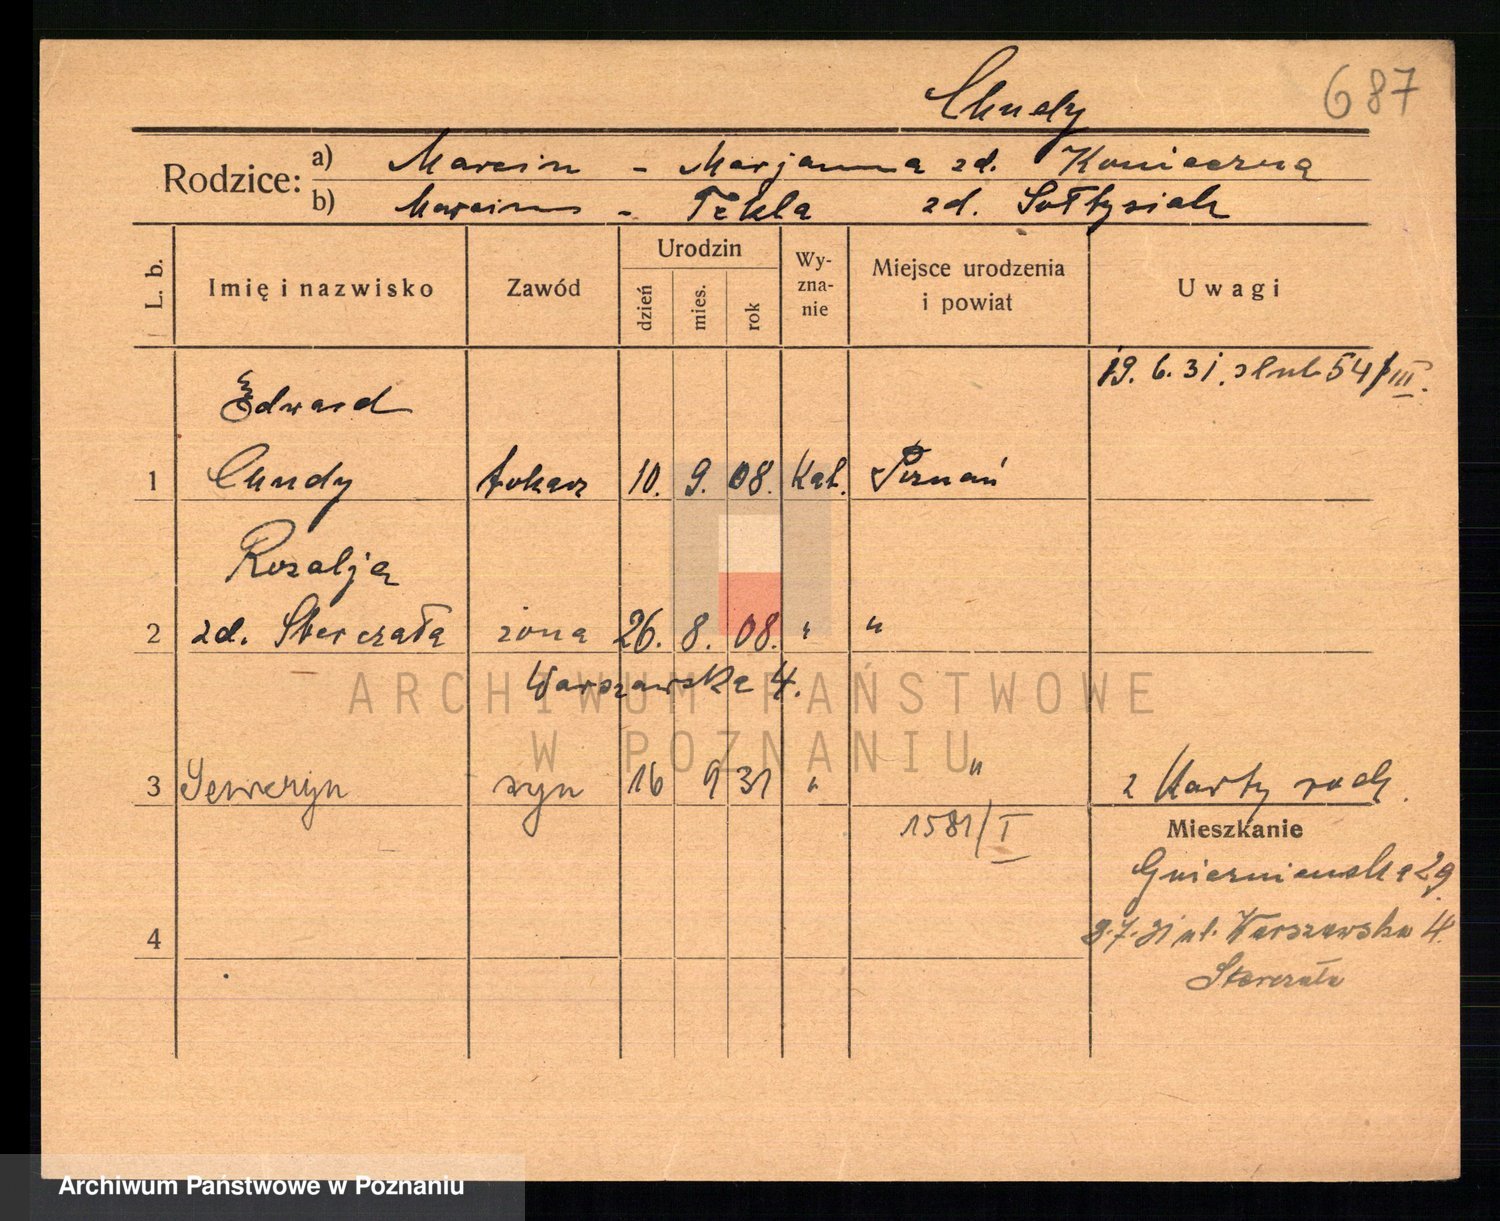 Chudy
687
Rodzice: a) Marcin - Marjanna zd. Konieczną
b) Marcin - Tekla zd. Sołtysiak
L. b. Imię i nazwisko Zawód Urodzin dzień mies. rok Wy-zna-nie Miejsce urodzenia i powiat Uwagi
19. 6. 31. ślub 54/III.
Edward
1 Chudy tokarz 10. 9. 08. Kat. Poznań
Rozalja
2 zd. Sterczała żona 26. 8. 08. " "
Warszawska 4.
3 Seweryn syn 16 9 31 " " z Karty rodz.
1581/I
Mieszkanie
Gnieźnieńska 29
4 9.7.31 ul. Warszawska 4.
Sterczała
ARCHIWUM PAŃSTWOWE
W POZNANIU
Archiwum Państwowe w Poznaniu